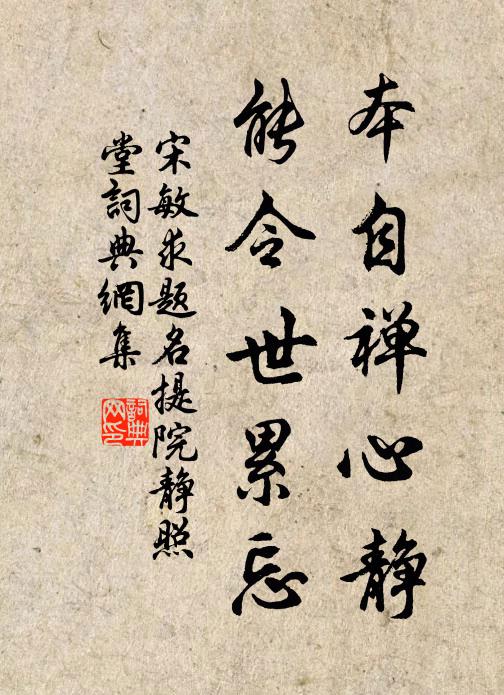 本自禅心静
能令世累忘
宋敏求题名提院静照
堂詞典網集
詞典
网印